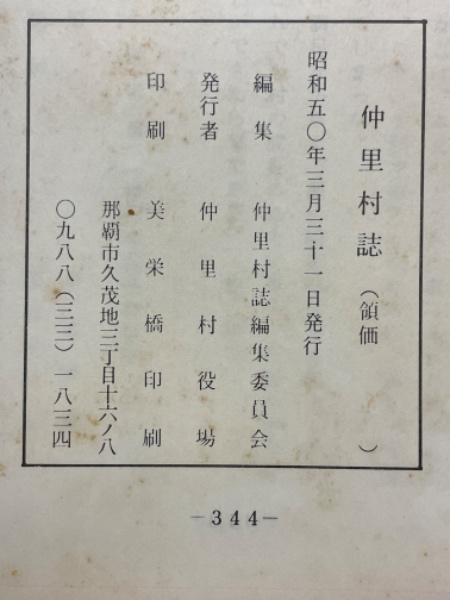 仲里村誌（領価　　　）
昭和五〇年三月三十一日発行
編集　仲里村誌編集委員会
発行者　仲里村役場
印刷　美栄橋印刷
那覇市久茂地三丁目十六ノ八
〇九八八（三三）一八三四
－344－